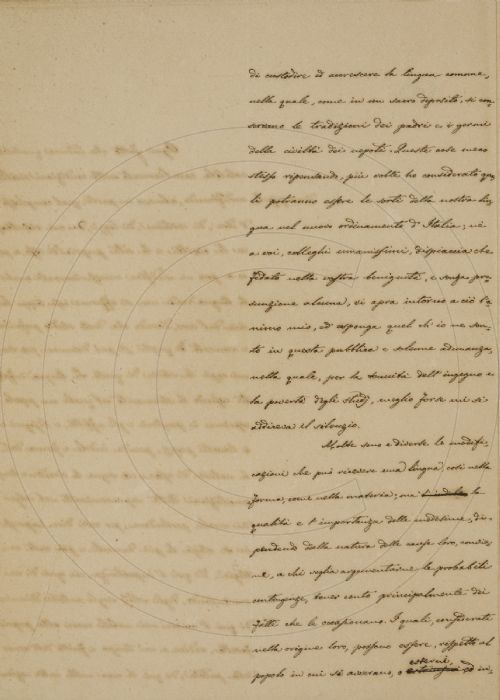 di custodire ed accrescere la lingua comune,
nella quale, come in un sacro deposito, si con-
servano le tradizioni dei padri e i germi
della civiltà dei nepoti. Queste cose meco
stesso ripensando, più volte ho considerato qua-
li potranno essere le sorti della nostra lin-
gua nel nuovo ordinamento d'Italia; nè
a voi, colleghi umanissimi, dispiaccia che
fidato nella vostra benignità, e senza pre-
sunzione alcuna, vi apra intorno a ciò l'a-
nimo mio, ed esponga quel ch'io ne sen-
to in questa pubblica e solenne adunanza,
nella quale, per la tenuità dell'ingegno e
la povertà degli studj, meglio forse mi si
addiceva il silenzio.
Molte sono e diverse le modifi-
cazioni che può ricevere una lingua, così nella
forma, come nella materia; ma la
qualità e l'importanza delle medesime, di-
pendendo dalla natura delle cause loro, convie-
ne, a chi voglia argomentarne le probabili
contingenze, tener conto principalmente dei
fatti che le cagionano. I quali, considerati
nella origine loro, possono essere, rispetto al
esterni,
popolo in cui si avverano, o od in-